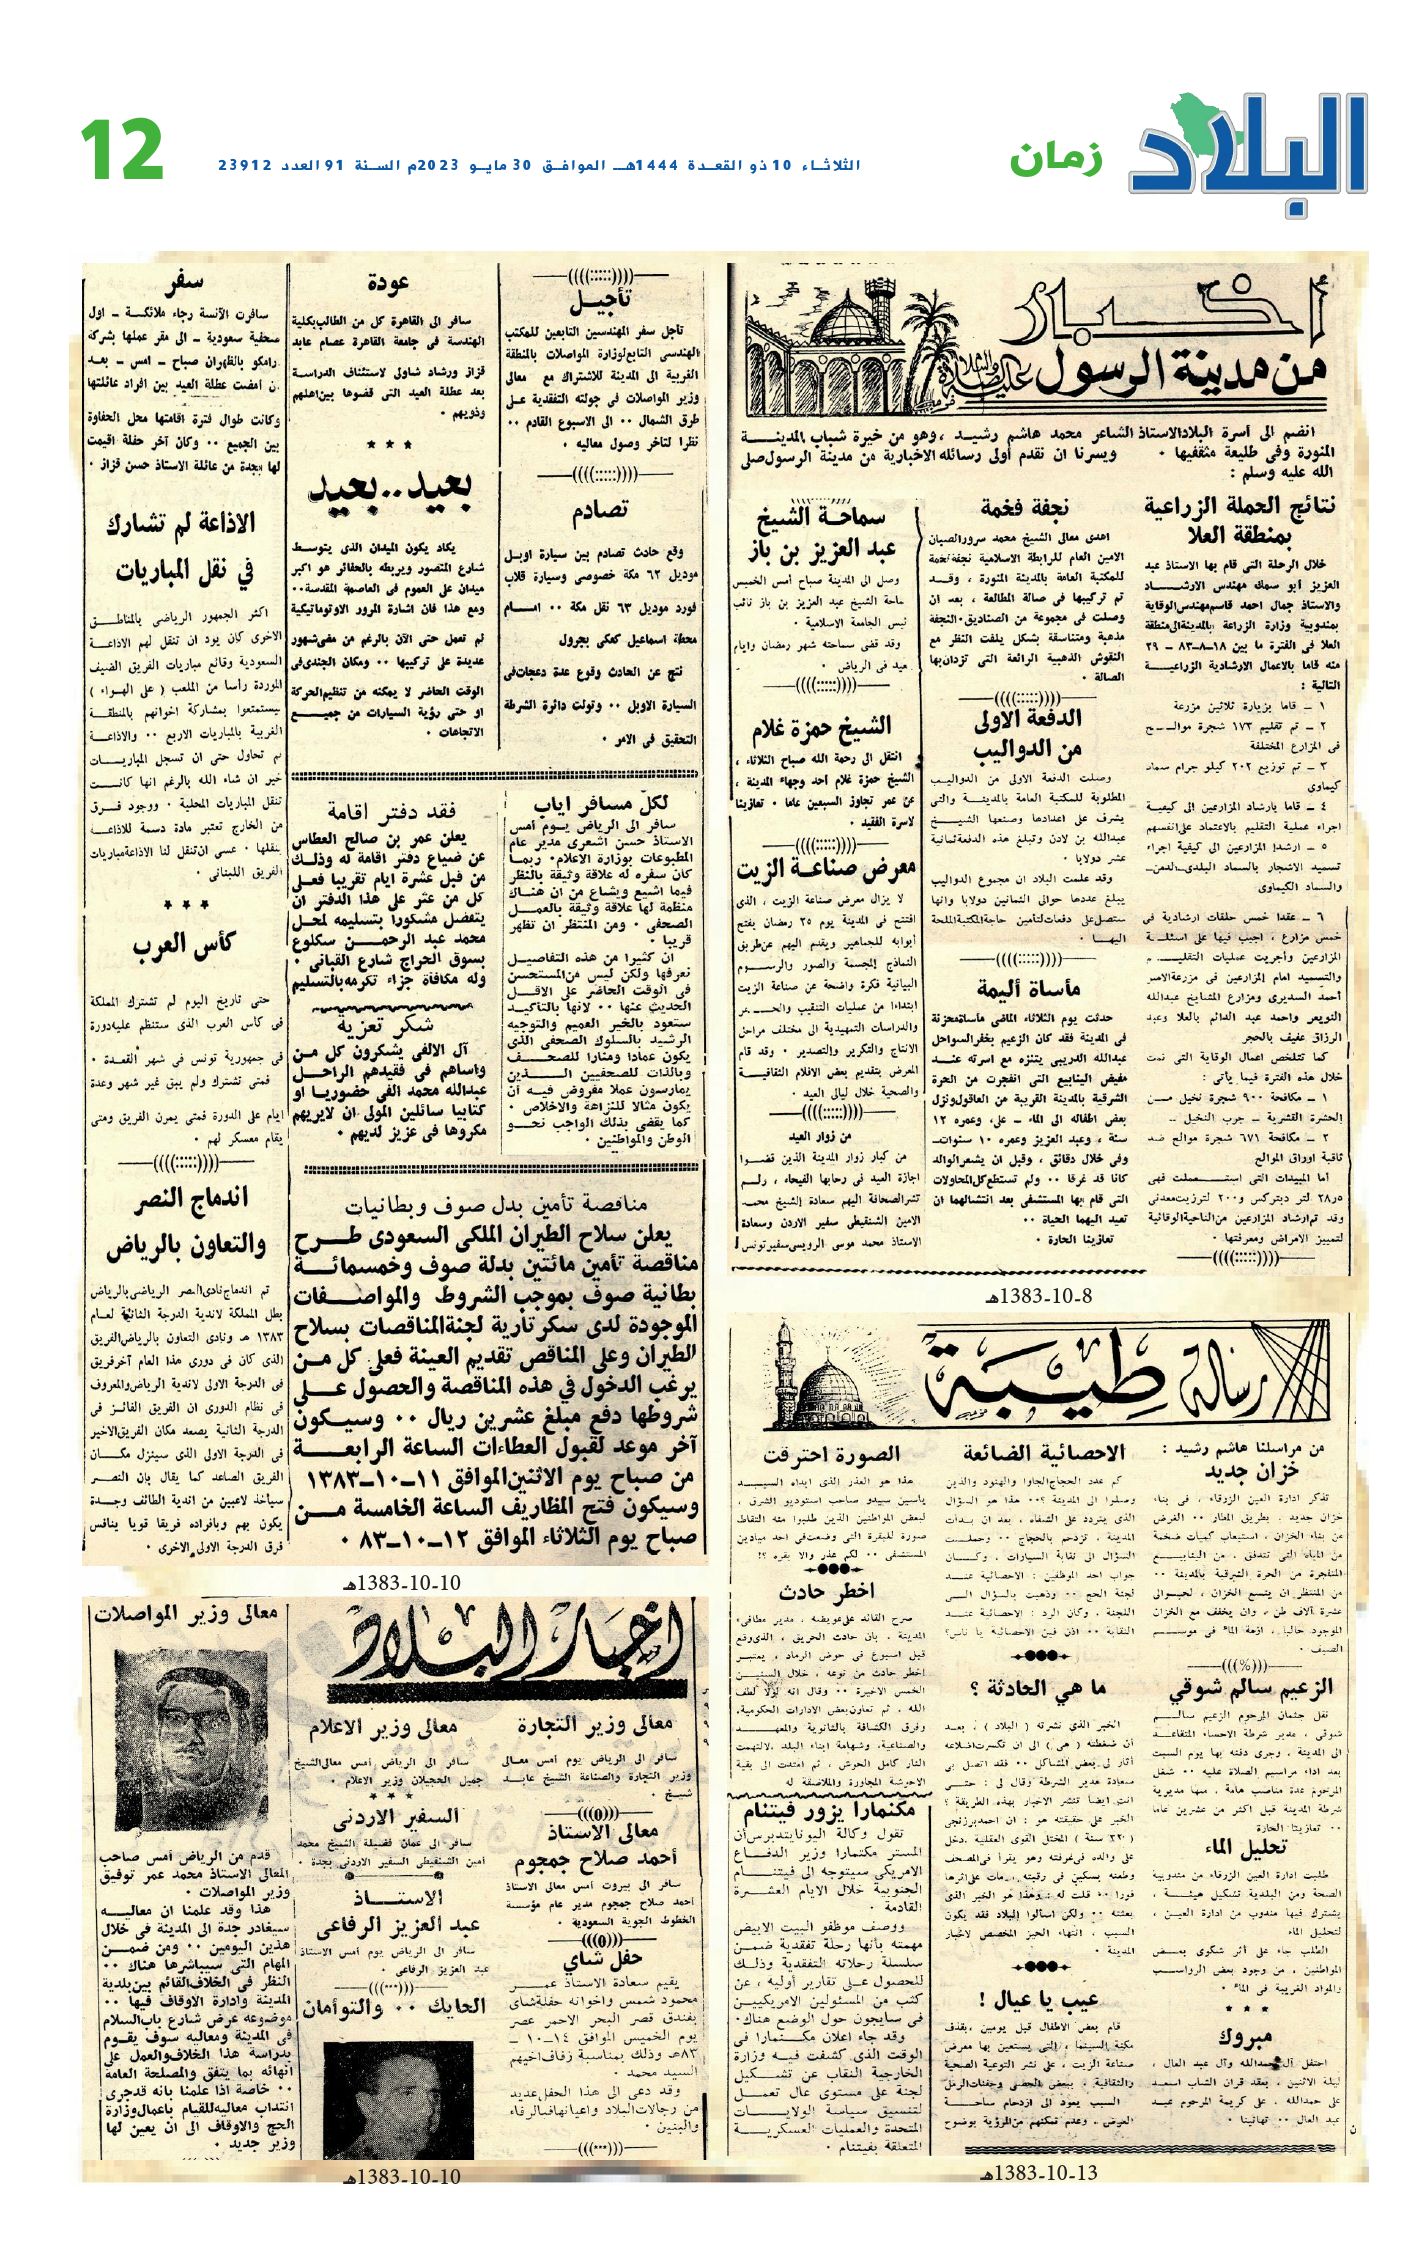 البلاد
زمان
الثلاثاء 10 ذو القعدة 1444هـ الموافق 30 مايو 2023م السنة 91 العدد 23912
12
أخبار
من مدينة الرسول
انضم الى أسرة البلاد الاستاذ الشاعر محمد هاشم رشيد ، وهو من خيرة شباب المدينة
المنورة وفى طليعة مثقفيها . ويسرنا ان نقدم أولى رسائله الاخبارية من مدينة الرسول صلى
الله عليه وسلم :
نتائج الحملة الزراعية
بمنطقة العلا
خلال الرحلة التى قام بها الاستاذ عبد
العزيز أبو سمك مهندس الارشاد
والاستاذ جمال احمد قاسم مهندس الوقاية
بمندوبية وزارة الزراعة بالمدينة الى منطقة
العلا فى الفترة ما بين ١٨-٨-٨٣ - ٢٩
منه قاما بالاعمال الارشادية الزراعية
التالية :
١ - قاما بزيارة ثلاثين مزرعة
٢ - تم تقليم ١٧٣ شجرة موالح
فى المزارع المختلفة
٣ - تم توزيع ٢٠٢ كيلو جرام سماد
كيماوى
٤ - قاما بارشاد المزارعين الى كيفية
اجراء عملية التقليم بالاعتماد على انفسهم
٥ - ارشدا المزارعين الى كيفية اجراء
تسميد الاشجار بالسماد البلدى
والسماد الكيماوى
٦ - عقدا خمس حلقات ارشادية فى
خمس مزارع ، اجيب فيها على اسئلة
المزارعين وأجريت عمليات التقليم
والتسميد امام المزارعين فى مزرعة الامير
أحمد السديرى ومزارع المشايخ عبدالله
التويعر واحمد عبد الدائم بالعلا وعبد
الرزاق عفيف بالحجر
كما تتلخص اعمال الوقاية التى تمت
خلال هذه الفترة فيما يأتى :
١ - مكافحة ٩٠٠ شجرة نخيل من
الحشرة القشرية - جرب النخيل ..
٢ - مكافحة ٦٧١ شجرة موالح ضد
ثاقبة اوراق الموالح
أما المبيدات التى استعملت فهى
وقد تم ارشاد المزارعين من الناحية الوقائية
لتمييز الامراض ومعرفتها .
نجفة فخمة
اهدى معالى الشيخ محمد سرور الصبان
الامين العام للرابطة الاسلامية نجفة فخمة
للمكتبة العامة بالمدينة المنورة ، وقد
تم تركيبها فى صالة المطالعة ، بعد ان
وصلت فى مجموعة من الصناديق . النجفة
مذهبة ومتناسقة بشكل يلفت النظر مع
النقوش الذهبية الرائعة التى تزدان بها
الصالة .
الدفعة الاولى
من الدواليب
وصلت الدفعة الاولى من الدواليب
المطلوبة للمكتبة العامة بالمدينة والتى
يشرف على اعدادها وصنعها الشيخ
عبدالله بن لادن وتبلغ هذه الدفعة ثمانية
عشر دولابا .
وقد علمت البلاد ان مجموع الدواليب
يبلغ عددها حوالى الثمانين دولابا وانها
ستصل على دفعات لتأمين حاجة المكتبة الملحة
اليها .
مأساة أليمة
حدثت يوم الثلاثاء الماضى مأساة محزنة
فى المدينة فقد كان الزعيم بخفر السواحل
عبدالله الدريبى يتنزه مع اسرته عند
مفيض الينابيع التى انفجرت من الحرة
الشرقية بالمدينة القريبة من العاقول ونزل
بعض اطفاله الى الماء - على وعمره ١٢
سنة ، وعبد العزيز وعمره ١٠ سنوات -
وفى خلال دقائق ، وقبل ان يشعر الوالد
كانا قد غرقا .. ولم تستطع كل المحاولات
التى قام بها المستشفى بعد انتشالهما ان
تعيد اليهما الحياة ..
تعازينا الحارة .
سماحة الشيخ
عبد العزيز بن باز
وصل الى المدينة صباح أمس الخميس
سماحة الشيخ عبد العزيز بن باز نائب
رئيس الجامعة الاسلامية .
وقد قضى سماحته شهر رمضان وايام
العيد فى الرياض .
الشيخ حمزة غلام
انتقل الى رحمة الله صباح الثلاثاء ،
الشيخ حمزة غلام أحد وجهاء المدينة ،
عن عمر تجاوز السبعين عاما . تعازينا
لاسرة الفقيد .
معرض صناعة الزيت
لا يزال معرض صناعة الزيت ، الذى
افتتح فى المدينة يوم ٢٥ رمضان يفتح
أبوابه للجماهير ويقدم اليهم عن طريق
النماذج المجسمة والصور والرسوم
البيانية فكرة واضحة عن صناعة الزيت
ابتداءا من عمليات التنقيب والحفر
والدراسات التمهيدية الى مختلف مراحل
الانتاج والتكرير والتصدير . وقد قام
المعرض بتقديم بعض الافلام الثقافية
والصحية خلال ليالى العيد .
من زوار العيد
من كبار زوار المدينة الذين قضوا
اجازة العيد فى رحابها الفيحاء ، ولم
تشر الصحافة اليهم سعادة الشيخ محمد
الامين الشنقيطى سفير الاردن وسعادة
الاستاذ محمد موسى الرويسى سفير تونس
1383-10-8هـ
تأجيل
تأجل سفر المهندسين التابعين للمكتب
الهندسى التابع لوزارة المواصلات بالمنطقة
الغربية الى المدينة للاشتراك مع معالى
وزير المواصلات فى جولته التفقدية على
طرق الشمال .. الى الاسبوع القادم ..
نظرا لتاخر وصول معاليه .
تصادم
وقع حادث تصادم بين سيارة اوبل
موديل ٦٣ مكة خصوصى وسيارة قلاب
فورد موديل ٦٣ نقل مكة .. امام
محطة اسماعيل كعكى بجرول
نتج عن الحادث وقوع عدة دعجات فى
السيارة الاوبل .. وتولت دائرة الشرطة
التحقيق فى الامر .
عودة
سافر الى القاهرة كل من الطالب بكلية
الهندسة فى جامعة القاهرة عصام عابد
قزاز ورشاد شاولى لاستئناف الدراسة
بعد عطلة العيد التى قضوها بين اهلهم
وذويهم .
بعيد..بعيد
يكاد يكون الميدان الذى يتوسط
شارع المنصور ويربطه بالحفائر هو اكبر
ميدان على العموم فى العاصمة المقدسة..
ومع هذا فان اشارة المرور الاوتوماتيكية
لم تعمل حتى الآن بالرغم من مضى شهور
عديدة على تركيبها .. ومكان الجندى فى
الوقت الحاضر لا يمكنه من تنظيم الحركة
او حتى رؤية السيارات من جميع
الاتجاهات .
سفر
سافرت الآنسة رجاء ملائكة - اول
صحفية سعودية - الى مقر عملها بشركة
ارامكو بالظهران صباح - امس - بعد
ان أمضت عطلة العيد بين افراد عائلتها
وكانت طوال فترة اقامتها محل الحفاوة
بين الجميع .. وكان آخر حفلة اقيمت
لها بجدة من عائلة الاستاذ حسن قزاز .
الاذاعة لم تشارك
في نقل المباريات
اكثر الجمهور الرياضى بالمناطق
الاخرى كان يود ان تنقل لهم الاذاعة
السعودية وقائع مباريات الفريق الضيف
الموردة رأسا من الملعب ( على الهواء )
ليستمتعوا بمشاركة اخوانهم بالمنطقة
الغربية بالمباريات الاربع .. والاذاعة
لم تحاول حتى ان تسجل المباريات
خير ان شاء الله بالرغم انها كانت
تنقل المباريات المحلية . ووجود فرق
من الخارج تعتبر مادة دسمة للاذاعة
بنقلها . عسى ان تنقل لنا الاذاعة مباريات
الفريق اللبنانى .
كأس العرب
حتى تاريخ اليوم لم تشترك المملكة
فى كاس العرب الذى ستنظم عليه دورة
فى جمهورية تونس فى شهر القعدة .
فمتى تشترك ولم يبق غير شهر وعدة
ايام على الدورة فمتى يمرن الفريق ومتى
يقام معسكر لهم .
اندماج النصر
والتعاون بالرياض
تم اندماج نادى النصر الرياضى بالرياض
بطل المملكة لاندية الدرجة الثانية لعام
١٣٨٣ هـ ونادى التعاون بالرياض الفريق
الذى كان فى دورى هذا العام آخر فريق
فى الدرجة الاولى لاندية الرياض والمعروف
فى نظام الدورى ان الفريق الفائز فى
الدرجة الثانية يصعد مكان الفريق الاخير
فى الدرجة الاولى الذى سينزل مكان
الفريق الصاعد كما يقال بان النصر
سياخذ لاعبين من اندية الطائف وجدة
يكون بهم وبافراده فريقا قويا ينافس
فرق الدرجة الاولى الاخرى .
لكل مسافر اياب
سافر الى الرياض يوم أمس
الاستاذ حسن أشعرى مدير عام
المطبوعات بوزارة الاعلام. ربما
كان سفره له علاقة وثيقة بالنظر
فيما اشيع ويشاع من أن هناك
منظمة لها علاقة وثيقة بالعمل
الصحفى . ومن المنتظر ان تظهر
قريبا .
ان كثيرا من هذه التفاصيل
نعرفها ولكن ليس من المستحسن
فى الوقت الحاضر على الاقل
الحديث عنها .. لأنها بالتأكيد
ستعود بالخير العميم والتوجيه
الرشيد بالسلوك الصحفى الذى
يكون عمادا ومنارا للصحف
وبالذات للصحفيين الذين
يمارسون عملا مفروض فيه أن
يكون مثالا للنزاهة والاخلاص .
كما يقضى بذلك الواجب نحو
الوطن والمواطنين .
فقد دفتر اقامة
يعلن عمر بن صالح العطاس
عن ضياع دفتر اقامة له وذلك
من قبل عشرة ايام تقريبا فعلى
كل من عثر على هذا الدفتر ان
يتفضل مشكورا بتسليمه لمحل
محمد عبد الرحمن سكلوع
بسوق الحراج شارع القبانى .
وله مكافأة جزاء تكرمه بالتسليم
شكر تعزية
آل الالفى يشكرون كل من
واساهم فى فقيدهم الراحل
عبدالله محمد الفى حضوريا او
كتابيا سائلين المولى ان لا يريهم
مكروها فى عزيز لديهم .
مناقصة تأمين بدل صوف وبطانيات
يعلن سلاح الطيران الملكى السعودى طرح
مناقصة تأمين مائتين بدلة صوف وخمسمائة
بطانية صوف بموجب الشروط والمواصفات
الموجودة لدى سكرتارية لجنة المناقصات بسلاح
الطيران وعلى المناقص تقديم العينة فعلى كل من
يرغب الدخول في هذه المناقصة والحصول على
شروطها دفع مبلغ عشرين ريال .. وسيكون
آخر موعد لقبول العطاءات الساعة الرابعة
من صباح يوم الاثنين الموافق ١١-١٠-١٣٨٣
وسيكون فتح المظاريف الساعة الخامسة من
صباح يوم الثلاثاء الموافق ١٢-١٠-٨٣ .
1383-10-10هـ
رسالة طيبة
من مراسلنا هاشم رشيد :
خزان جديد
تفكر ادارة العين الزرقاء ، فى بناء
خزان جديد . بطريق المطار .. الغرض
من بناء الخزان ، استيعاب كميات ضخمة
من المياه التى تتدفق . من الينابيع
المتفجرة من الحرة الشرقية بالمدينة ..
من المنتظر ان يتسع الخزان ، لحوالى
عشرة آلاف طن ، وان يخفف مع الخزان
الموجود حاليا ، أزمة الماء فى موسم
الصيف .
الزعيم سالم شوقي
نقل جثمان المرحوم الزعيم سالم
شوقى ، مدير شرطة الاحساء المتقاعد
الى المدينة ، وجرى دفنه بها يوم السبت
بعد أداء مراسيم الصلاة عليه .. شغل
المرحوم عدة مناصب هامة . منها مديرية
شرطة المدينة قبل أكثر من عشرين عاما
.. تعازينا الحارة
تحليل الماء
طلبت ادارة العين الزرقاء من مندوبية
الصحة ومن البلدية تشكيل هيئة ،
يشترك فيها مندوب من ادارة العين ،
لتحليل الماء
الطلب جاء على أثر شكوى بعض
المواطنين . من وجود بعض الرواسب
والمواد الغريبة فى الماء .
مبروك
احتفل آل حمدالله وآل عبد العال ،
ليلة الاثنين ، بعقد قران الشاب أسعد
على حمدالله . على كريمة المرحوم عيد
عبد العال .. تهانينا .
الاحصائية الضائعة
كم عدد الحجاج الجاوا والهنود والذين
وصلوا الى المدينة ؟.. هذا هو السؤال
الذى يتردد على الشفاه ، بعد ان بدأت
المدينة . تزدحم بالحجاج .. وحملت
السؤال الى نقابة السيارات . وكان
جواب احد الموظفين : الاحصائية عند
لجنة الحج .. وذهبت بالسؤال الى
اللجنة . وكان الرد : الاحصائية عند
النقابة .. اذن فين الاحصائية يا ناس؟
ما هي الحادثة ؟
الخبر الذى نشرته ( البلاد ) ، بعد
ان ضغطته ( هى ) الى ان تكسرت اضلاعه
أثار لى بعض المشاكل .. فقد اتصل بى
سعادة مدير الشرطة وقال لى : حتى
انت أيضا تنتشر الاخبار بهذه الطريقة ؟
الخبر على حقيقته هو : ان احمد برزنجى
( ٢٢ سنة ) المختل القوى العقلية . دخل
على والده فى غرفته وهو يقرأ فى المصحف
وطعنه بسكين فى رقبته . مات على اثرها
فورا .. قلت له : وهذا هو الخبر الذى
بعثته .. ولكن اسألوا البلاد فقد يكون
السبب . انتهاء الحيز المخصص لاخبار
المدينة .
عيب يا عيال !
قام بعض الاطفال قبل يومين ، بقذف
مكنة السينما ، التى يستعين بها معرض
صناعة الزيت ، على نشر التوعية الصحية
والثقافية . ببعض الحصى وحفنات الرمل
السبب يعود الى ازدحام ساحة
العرض ، وعدم تمكنهم من الرؤية بوضوح
الصورة احترقت
هذا هو العذر الذى ابداه السيد
ياسين سيبدو صاحب استوديو الشرق ،
لبعض المواطنين الذين طلبوا منه التقاط
صورة لفيفرة التى وضعت فى احد ميادين
المستشفى .. لكم عذر والا بقره ؟!
اخطر حادث
صرح القائد على عويضه ، مدير مطافىء
المدينة ، بان حادث الحريق ، الذى وقع
قبل اسبوع فى حوض الرماد ، يعتبر
اخطر حادث من نوعه ، خلال السنين
الخمس الاخيرة .. وقال انه لولا لطف
الله ، ثم تعاون بعض الادارات الحكومية،
وفرق الكشافة بالثانوية والمعهد
والصناعية، وشهامة ابناء البلد . لالتهمت
النار كامل الحوش ، ثم امتدت الى بقية
الاحوشة المجاورة والملاصقة له
مكنمارا يزور فيتنام
تقول وكالة اليونايتدبرس أن
المستر مكنمارا وزير الدفاع
الامريكى سيتوجه الى فيتنام
الجنوبية خلال الايام العشرة
القادمة .
ووصف موظفو البيت الابيض
مهمته بأنها رحلة تفقدية ضمن
سلسلة رحلاته التفقدية وذلك
للحصول على تقارير أوليه ، عن
كثب من المسئولين الامريكيين
فى سايجون حول الوضع هناك.
وقد جاء اعلان مكنمارا فى
الوقت الذى كشفت فيه وزارة
الخارجية النقاب عن تشكيل
لجنة على مستوى عال تعمل
لتنسيق سياسة الولايات
المتحدة والعمليات العسكرية
المتعلقة بفيتنام .
1383-10-13هـ
اخبار البلاد
معالى وزير التجارة
سافر الى الرياض يوم أمس معالى
وزير التجارة والصناعة الشيخ عابد
شيخ .
معالى الاستاذ
أحمد صلاح جمجوم
سافر الى بيروت أمس معالى الاستاذ
احمد صلاح جمجوم مدير عام مؤسسة
الخطوط الجوية السعودية .
حفل شاي
يقيم سعادة الاستاذ عمر
محمود شمس واخوانه حفلة شاى
بفندق قصر البحر الاحمر عصر
يوم الخميس الموافق ١٤-١٠-
٨٣هـ وذلك بمناسبة زفاف اخيهم
السيد محمد .
وقد دعى الى هذا الحفل عديد
من رجالات البلاد واعيانها فبالرفاء
والبنين .
معالى وزير الاعلام
سافر الى الرياض أمس معالى الشيخ
جميل الحجيلان وزير الاعلام .
السفير الاردنى
سافر الى عمان فضيلة الشيخ محمد
أمين الشنقيطى السفير الاردنى بجدة .
الاستاذ
عبد العزيز الرفاعى
سافر الى الرياض يوم أمس الاستاذ
عبد العزيز الرفاعى .
الحايك .. والتوأمان
معالى وزير المواصلات
قدم من الرياض أمس صاحب
المعالى الاستاذ محمد عمر توفيق
وزير المواصلات .
هذا وقد علمنا أن معاليه
سيغادر جدة الى المدينة فى خلال
هذين اليومين .. ومن ضمن
المهام التى سيباشرها هناك ..
النظر فى الخلاف القائم بين بلدية
المدينة وادارة الاوقاف فيها ..
موضوعه عرض شارع باب السلام
فى المدينة ومعاليه سوف يقوم
بدراسة هذا الخلاف والعمل على
انهائه بما يتفق والمصلحة العامة
.. خاصة اذا علمنا بانه قد جرى
انتداب معاليه للقيام باعمال وزارة
الحج والاوقاف الى ان يعين لها
وزير جديد .
1383-10-10هـ